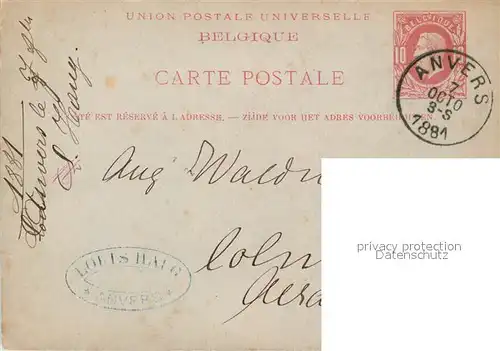 UNION POSTALE UNIVERSELLE
BELGIQUE
CARTE POSTALE
TÉ EST RÉSERVÉ À L'ADRESSE. — ZIJDE VOOR HET ADRES VOORBEHOUDEN
BELGIQUE
10
ANVERS
7
OCTO
3-S
1881
Aug Waldn
Coln
1881
Anvers le
L. Haug.
LOUIS HAUG
ANVERS
privacy protection
Datenschutz